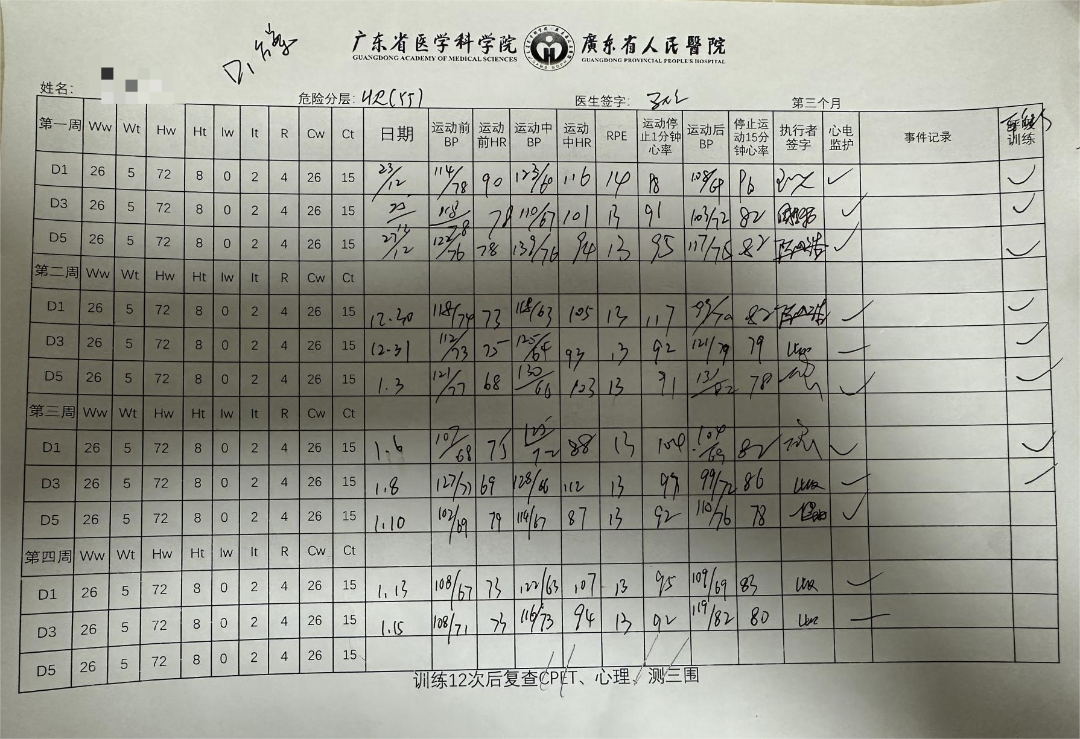 广东省医学科学院 廣東省人民醫院
GUANGDONG ACADEMY OF MEDICAL SCIENCES GUANGDONG PROVINCIAL PEOPLE'S HOSPITAL
姓名: 危险分层: 医生签字: 第三个月
第一周 Ww Wt Hw Ht Iw It R Cw Ct 日期 运动前BP 运动前HR 运动中BP 运动中HR RPE 运动停止1分钟心率 运动后BP 停止运动15分钟心率 执行者签字 心电监护 事件记录 训练
D1 26 5 72 8 0 2 4 26 15 23/12 114/78 90 116 14
D3 26 5 72 8 0 2 4 26 15 78 110/67 101 13 91 103/72 82
D5 26 5 72 8 0 2 4 26 15 27/12 122/76 78 139/76 94 13 95 117/75 82
第二周 Ww Wt Hw Ht Iw It R Cw Ct
D1 26 5 72 8 0 2 4 26 15 12.30 118/74 73 118/63 105 13 117 82
D3 26 5 72 8 0 2 4 26 15 12-31 112/73 75 125/64 93 13 92 121/79 79
D5 26 5 72 8 0 2 4 26 15 1.3 121/77 68 130/66 103 13 91 131/82 78
第三周 Ww Wt Hw Ht Iw It R Cw Ct
D1 26 5 72 8 0 2 4 26 15 1.6 107/68 75 88 13 104 104/69 82
D3 26 5 72 8 0 2 4 26 15 1.8 127/77 69 128/66 112 13 99 99/72 86
D5 26 5 72 8 0 2 4 26 15 1.10 102/69 79 114/67 87 13 92 110/76 78
第四周 Ww Wt Hw Ht Iw It R Cw Ct
D1 26 5 72 8 0 2 4 26 15 1.13 108/67 73 122/63 107 13 95 109/69 83
D3 26 5 72 8 0 2 4 26 15 1.15 108/71 73 116/73 94 13 92 119/82 80
D5 26 5 72 8 0 2 4 26 15
训练12次后复查CPET、心理、测三围